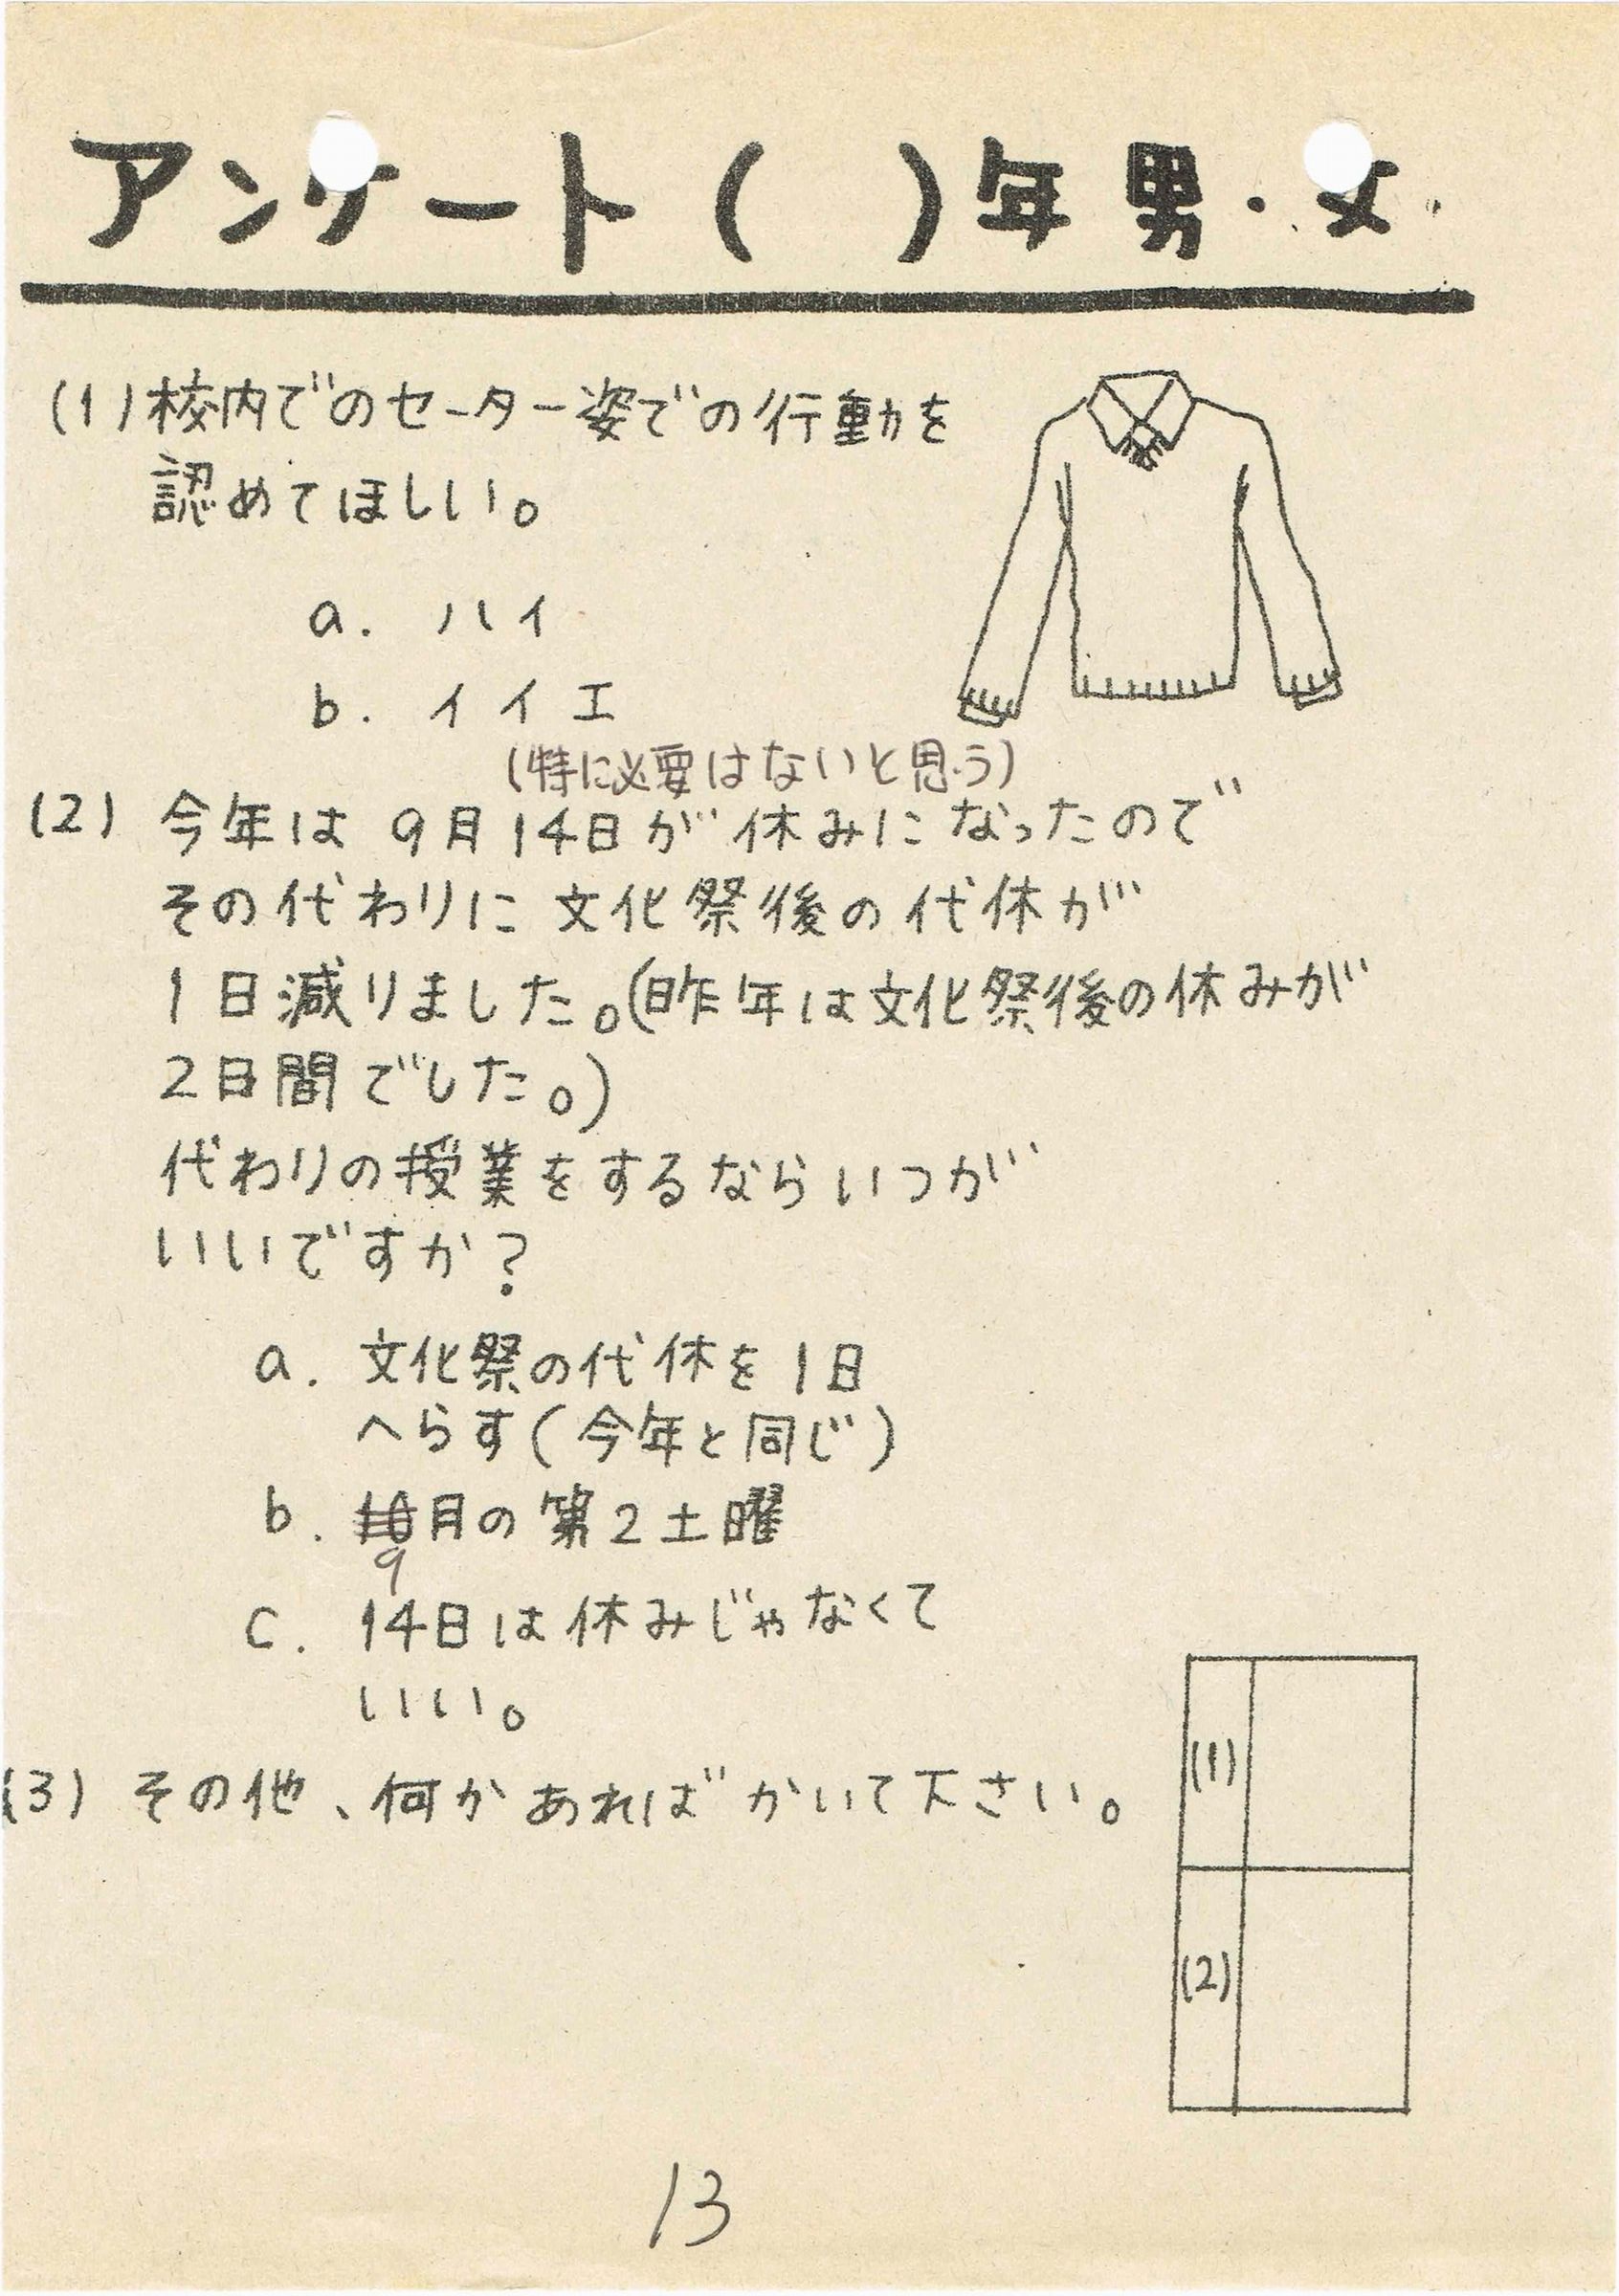 アンケート ( )年 男・女
(1) 校内でのセーター姿での行動を
認めてほしい。
a. ハイ
b. イイエ
(特に必要はないと思う)
(2) 今年は 9月14日が休みになったので
その代わりに文化祭後の代休が
1日減りました。(昨年は文化祭後の休みが
2日間でした。)
代わりの授業をするならいつが
いいですか?
a. 文化祭の代休を1日
へらす(今年と同じ)
b. 10月の第2土曜
9
c. 14日は休みじゃなくて
いい。
(3) その他、何かあればかいて下さい。
(1)
(2)
13